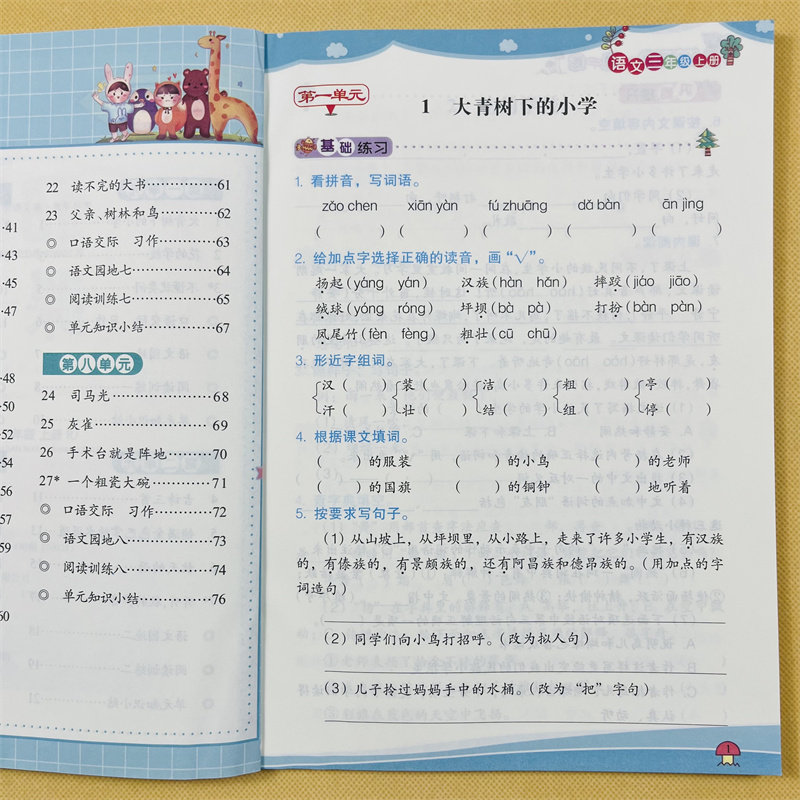 22 读不完的大书……………61
23 父亲、树林和鸟…………62
◎ 口语交际 习作…………63
◎ 语文园地七……………64
◎ 阅读训练七……………65
◎ 单元知识小结…………67
第八单元
24 司马光…………………68
25 灰雀……………………69
26 手术台就是阵地………70
27* 一个粗瓷大碗…………71
◎ 口语交际 习作…………72
◎ 语文园地八……………73
◎ 阅读训练八……………74
◎ 单元知识小结…………76
·41
43
45
47
·48
·52
·54
·56
57
59
60
语文三年级上册
1
第一单元
1 大青树下的小学
基础练习
1. 看拼音，写词语。
zǎo chen xiān yàn fú zhuāng dǎ bàn ān jìng
( ) ( ) ( ) ( ) ( )
2. 给加点字选择正确的读音，画“√”。
扬起(yáng yán) 汉族(hàn hǎn) 摔跤(jiáo jiāo)
绒球(yóng róng) 坪坝(bà pà) 打扮(bàn pàn)
凤尾竹(fèn fèng) 粗壮(cū chū)
3. 形近字组词。
汉( ) 装( ) 洁( ) 粗( ) 亭( )
汗( ) 壮( ) 结( ) 组( ) 停( )
4. 根据课文填词。
( )的服装 ( )的小鸟 ( )的老师
( )的国旗 ( )的铜钟 ( )地听着
5. 按要求写句子。
(1) 从山坡上，从坪坝里，从小路上，走来了许多小学生，有汉族
的，有傣族的，有景颇族的，还有阿昌族和德昂族的。(用加点的字
词造句)
(2) 同学们向小鸟打招呼。(改为拟人句)
(3) 儿子拎过妈妈手中的水桶。(改为“把”字句)
1